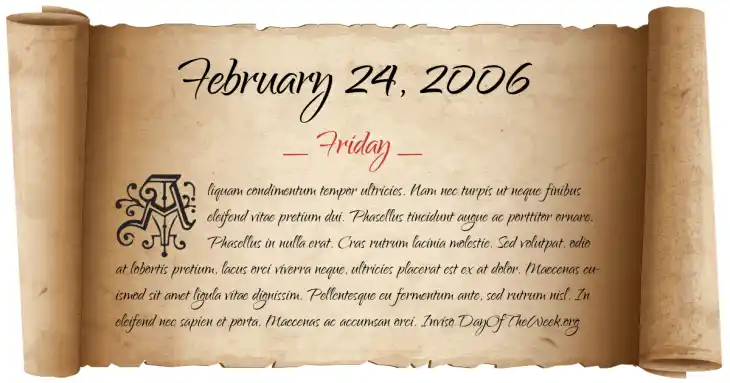 February 24, 2006
_ Friday _
Aliquam condimentum tempor ultricies. Nam nec turpis ut neque finibus
eleifend vitae pretium dui. Phasellus tincidunt augue ac porttitor ornare.
Phasellus in nulla erat. Cras rutrum lacinia molestie. Sed volutpat, odio
at lobortis pretium, lacus orci viverra neque, ultricies placerat est ex at dolor. Maecenas eu-
ismod sit amet ligula vitae dignissim. Pellentesque eu fermentum ante, sed rutrum nisl. In
eleifend nec sapien et porta. Maecenas ac accumsan orci. Inviso DayOfTheWeek.org